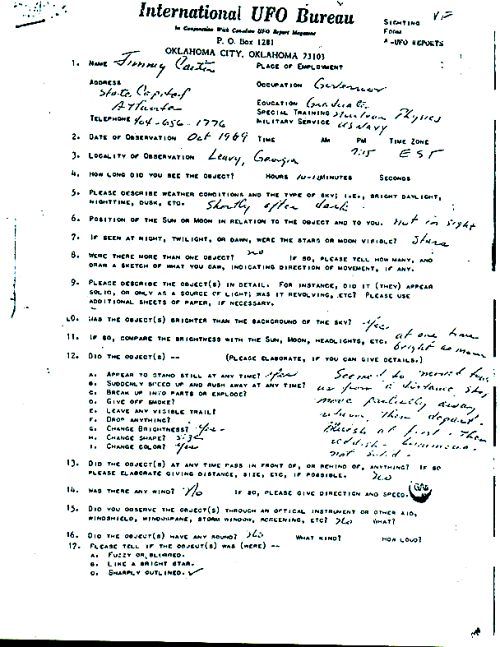 International UFO Bureau
In Cooperation With Canadian UFO Report Magazine
P. O. Box 1281
OKLAHOMA CITY, OKLAHOMA 73103
SIGHTING
FORM
-UFO REPORTS
1. NAME Jimmy Carter PLACE OF EMPLOYMENT
ADDRESS State Capitol Atlanta OCCUPATION Governor
EDUCATION Graduate
SPECIAL TRAINING Nuclear Physics
TELEPHONE 404-656-1776 MILITARY SERVICE US Navy
2. DATE OF OBSERVATION Oct 1969 TIME AM PM TIME ZONE
7:15 EST
3. LOCALITY OF OBSERVATION Leary, Georgia
4. HOW LONG DID YOU SEE THE OBJECT? HOURS 10-12 MINUTES SECONDS
5. PLEASE DESCRIBE WEATHER CONDITIONS AND THE TYPE OF SKY; I.E., BRIGHT DAYLIGHT,
NIGHTTIME, DUSK, ETC. Shortly after dark.
6. POSITION OF THE SUN OR MOON IN RELATION TO THE OBJECT AND TO YOU. Not in sight
7. IF SEEN AT NIGHT, TWILIGHT, OR DAWN, WERE THE STARS OR MOON VISIBLE? Stars
8. WERE THERE MORE THAN ONE OBJECT? no IF SO, PLEASE TELL HOW MANY, AND
DRAW A SKETCH OF WHAT YOU SAW, INDICATING DIRECTION OF MOVEMENT, IF ANY.
9. PLEASE DESCRIBE THE OBJECT(S) IN DETAIL. FOR INSTANCE, DID IT (THEY) APPEAR
SOLID, OR ONLY AS A SOURCE OF LIGHT; WAS IT REVOLVING, ETC? PLEASE USE
ADDITIONAL SHEETS OF PAPER, IF NECESSARY.
10. WAS THE OBJECT(S) BRIGHTER THAN THE BACKGROUND OF THE SKY? yes
11. IF SO, COMPARE THE BRIGHTNESS WITH THE SUN, MOON, HEADLIGHTS, ETC. at one time bright as moon
12. DID THE OBJECT(S) -- (PLEASE ELABORATE, IF YOU CAN GIVE DETAILS.)
A. APPEAR TO STAND STILL AT ANY TIME? yes
B. SUDDENLY SPEED UP AND RUSH AWAY AT ANY TIME?
C. BREAK UP INTO PARTS OR EXPLODE?
D. GIVE OFF SMOKE?
E. LEAVE ANY VISIBLE TRAIL?
F. DROP ANYTHING?
G. CHANGE BRIGHTNESS? yes
H. CHANGE SHAPE? size
I. CHANGE COLOR? yes
Seemed to move
us from a distance, stop
move partially away
return, then depart.
Bluish at first - then
reddish - luminous -
not solid -
13. DID THE OBJECT(S) AT ANY TIME PASS IN FRONT OF, OR BEHIND OF, ANYTHING? IF SO
PLEASE ELABORATE GIVING DISTANCE, SIZE, ETC, IF POSSIBLE. no
14. WAS THERE ANY WIND? No IF SO, PLEASE GIVE DIRECTION AND SPEED.
15. DID YOU OBSERVE THE OBJECT(S) THROUGH AN OPTICAL INSTRUMENT OR OTHER AID,
WINDSHIELD, WINDOWPANE, STORM WINDOW, SCREENING, ETC? No WHAT?
16. DID THE OBJECT(S) HAVE ANY SOUND? No WHAT KIND? HOW LOUD?
17. PLEASE TELL IF THE OBJECT(S) WAS (WERE) --
A. FUZZY OR BLURRED.
B. LIKE A BRIGHT STAR.
C. SHARPLY OUTLINED. ✓